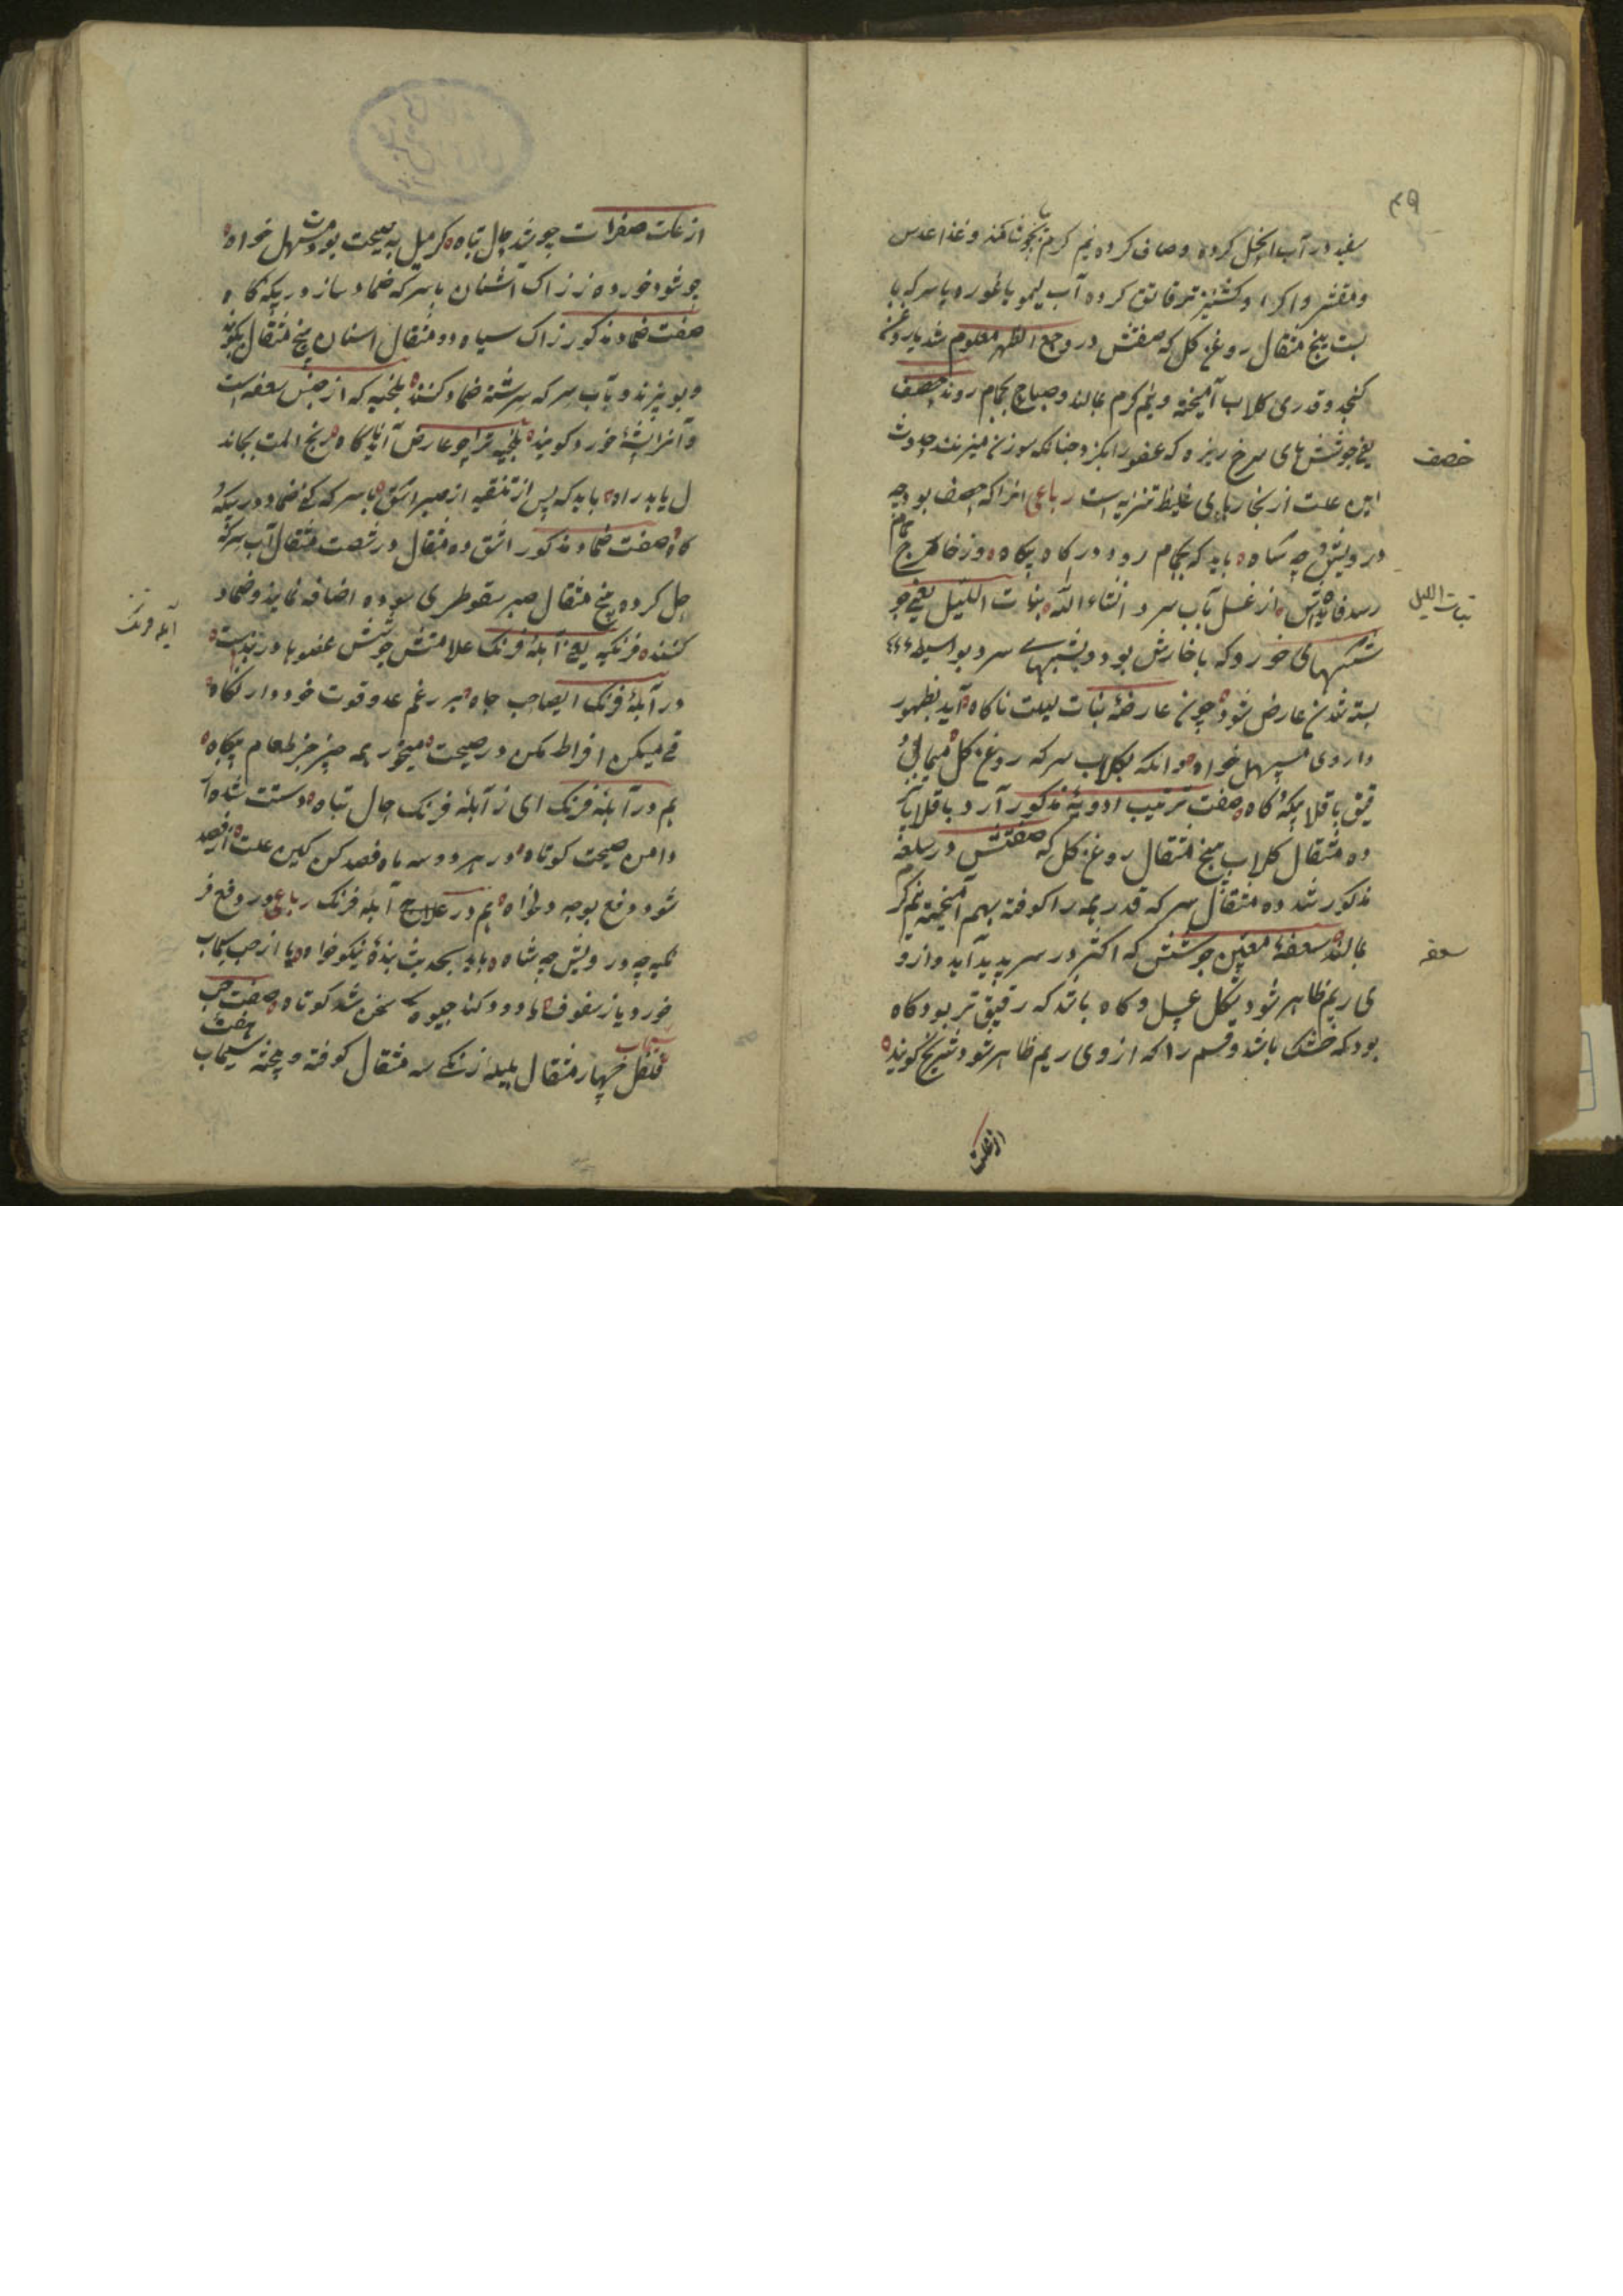 ۴۹
سفید در آب انجل کرده و صاف کرده نیم کرم بجوشانند و غذا عدس
و مقشر و اکرا و کشنیز تر قاتق کرده آب لیمو یا غوره یا سرکه با
بست پنج مثقال روغن کل که صفتش در وجع الظهر معلوم شد یا روغن
کنجد و قدری کلاب آمیخته و نیم کرم بمالند و صباح بحمام روند حصف
یعنی جوششهای سرخ ریزه که عضو را بکزد چنانکه سوزن میزنند حدوث
این علت از بخارهای غلیظ تیزیه است رباعی انرا که حصف بود چه
درویش و چه شاه باید که بحمام رود در کاه بیکاه وز خاکه حمام
رسد فایده‌اش از غسل بآب سرد انشاء الله بنات اللیل یعنی جو
ششهای خورد که با خارش بود و بشبهای سرد بواسطه
بسته شدن عارض شود چون عارضهٔ بنات لیلت ناکاه آید بظهور
داروی مسهل خواه وانکه بکلاب سرکه روغن کل میمالی و
قیق باقلا بیکه و کاه صفت ترتیب ادویهٔ مذکور آرد باقلا یک
ده مثقال کلاب پنج مثقال روغن کل که صفتش در سلعه
مذکور شد ده مثقال سرکه قدر همه را کوفته بهم آمیخته نیم کرم
بمالند سعفه معین جوششی که اکثر در سر پدید آید و ازو
ی ریم ظاهر شود بشکل عسل و کاه باشد که رقیق تر بود و کاه
بود که خشک باشد و قسم را که از وی ریم ظاهر شود شیرینج کویند
خصف
بنات اللیل
سعفه
از علت
از علت صفرات چو شد حال تباه کر میل به صحت بودت مسهل خواه
چو شود خورده ز زاک اشنان با سرکه ضماد ساز در بیکه کاه
صفت ضماد مذکور زاک سیاه دو مثقال اشنان پنج مثقال بکوبند
و بو پزند و بآب سرکه سرشته ضماد کنند بلخیه که از جنس سعفه است
و آنرا پشهٔ خورد کویند بلخیه ترا چو عارض آید ناکاه رنج المت بجاند
ل یابد راه باید که پس از تنقیه از صبر اشق با سرکه کنی ضماد در بیکه و
کاه صفت ضماد مذکور اشق ده مثقال در شصت مثقال آب سرکه
حل کرده پنج مثقال صبر سقوطری سوده اضافه نمایند و ضماد
کنند فرنکیه یعنی آبلهٔ فرنک علامتش جوشش عضوها در بدنست
در آبلهٔ فرنک ایصاحب جاه بر رغم عدو قوت خود دار نکاه
قی میکن افراط مکن در صحت میخور همه چیز جز طعام بیکاه
هم در آبلهٔ فرنک ای ز آبلهٔ فرنک حال تباه دستت شده از
دامن صحت کوتاه در هر دو سه ماه فصد کن کین علت از فصد
شود دفع بوجه دلخواه هم در علاج آبلهٔ فرنک رباعی در دفع فر
نکیه چه درویش چه شاه باید بحدیث بندهٔ نیکو خواه یا از حب سیماب
خورد یا ز سفوف یا دود کند جیوه سخن شد کوتاه صفت حب
سیماب فلفل چهار مثقال بلیله زنکی سه مثقال کوفته و پخته سیماب هفت
آبله فرنک